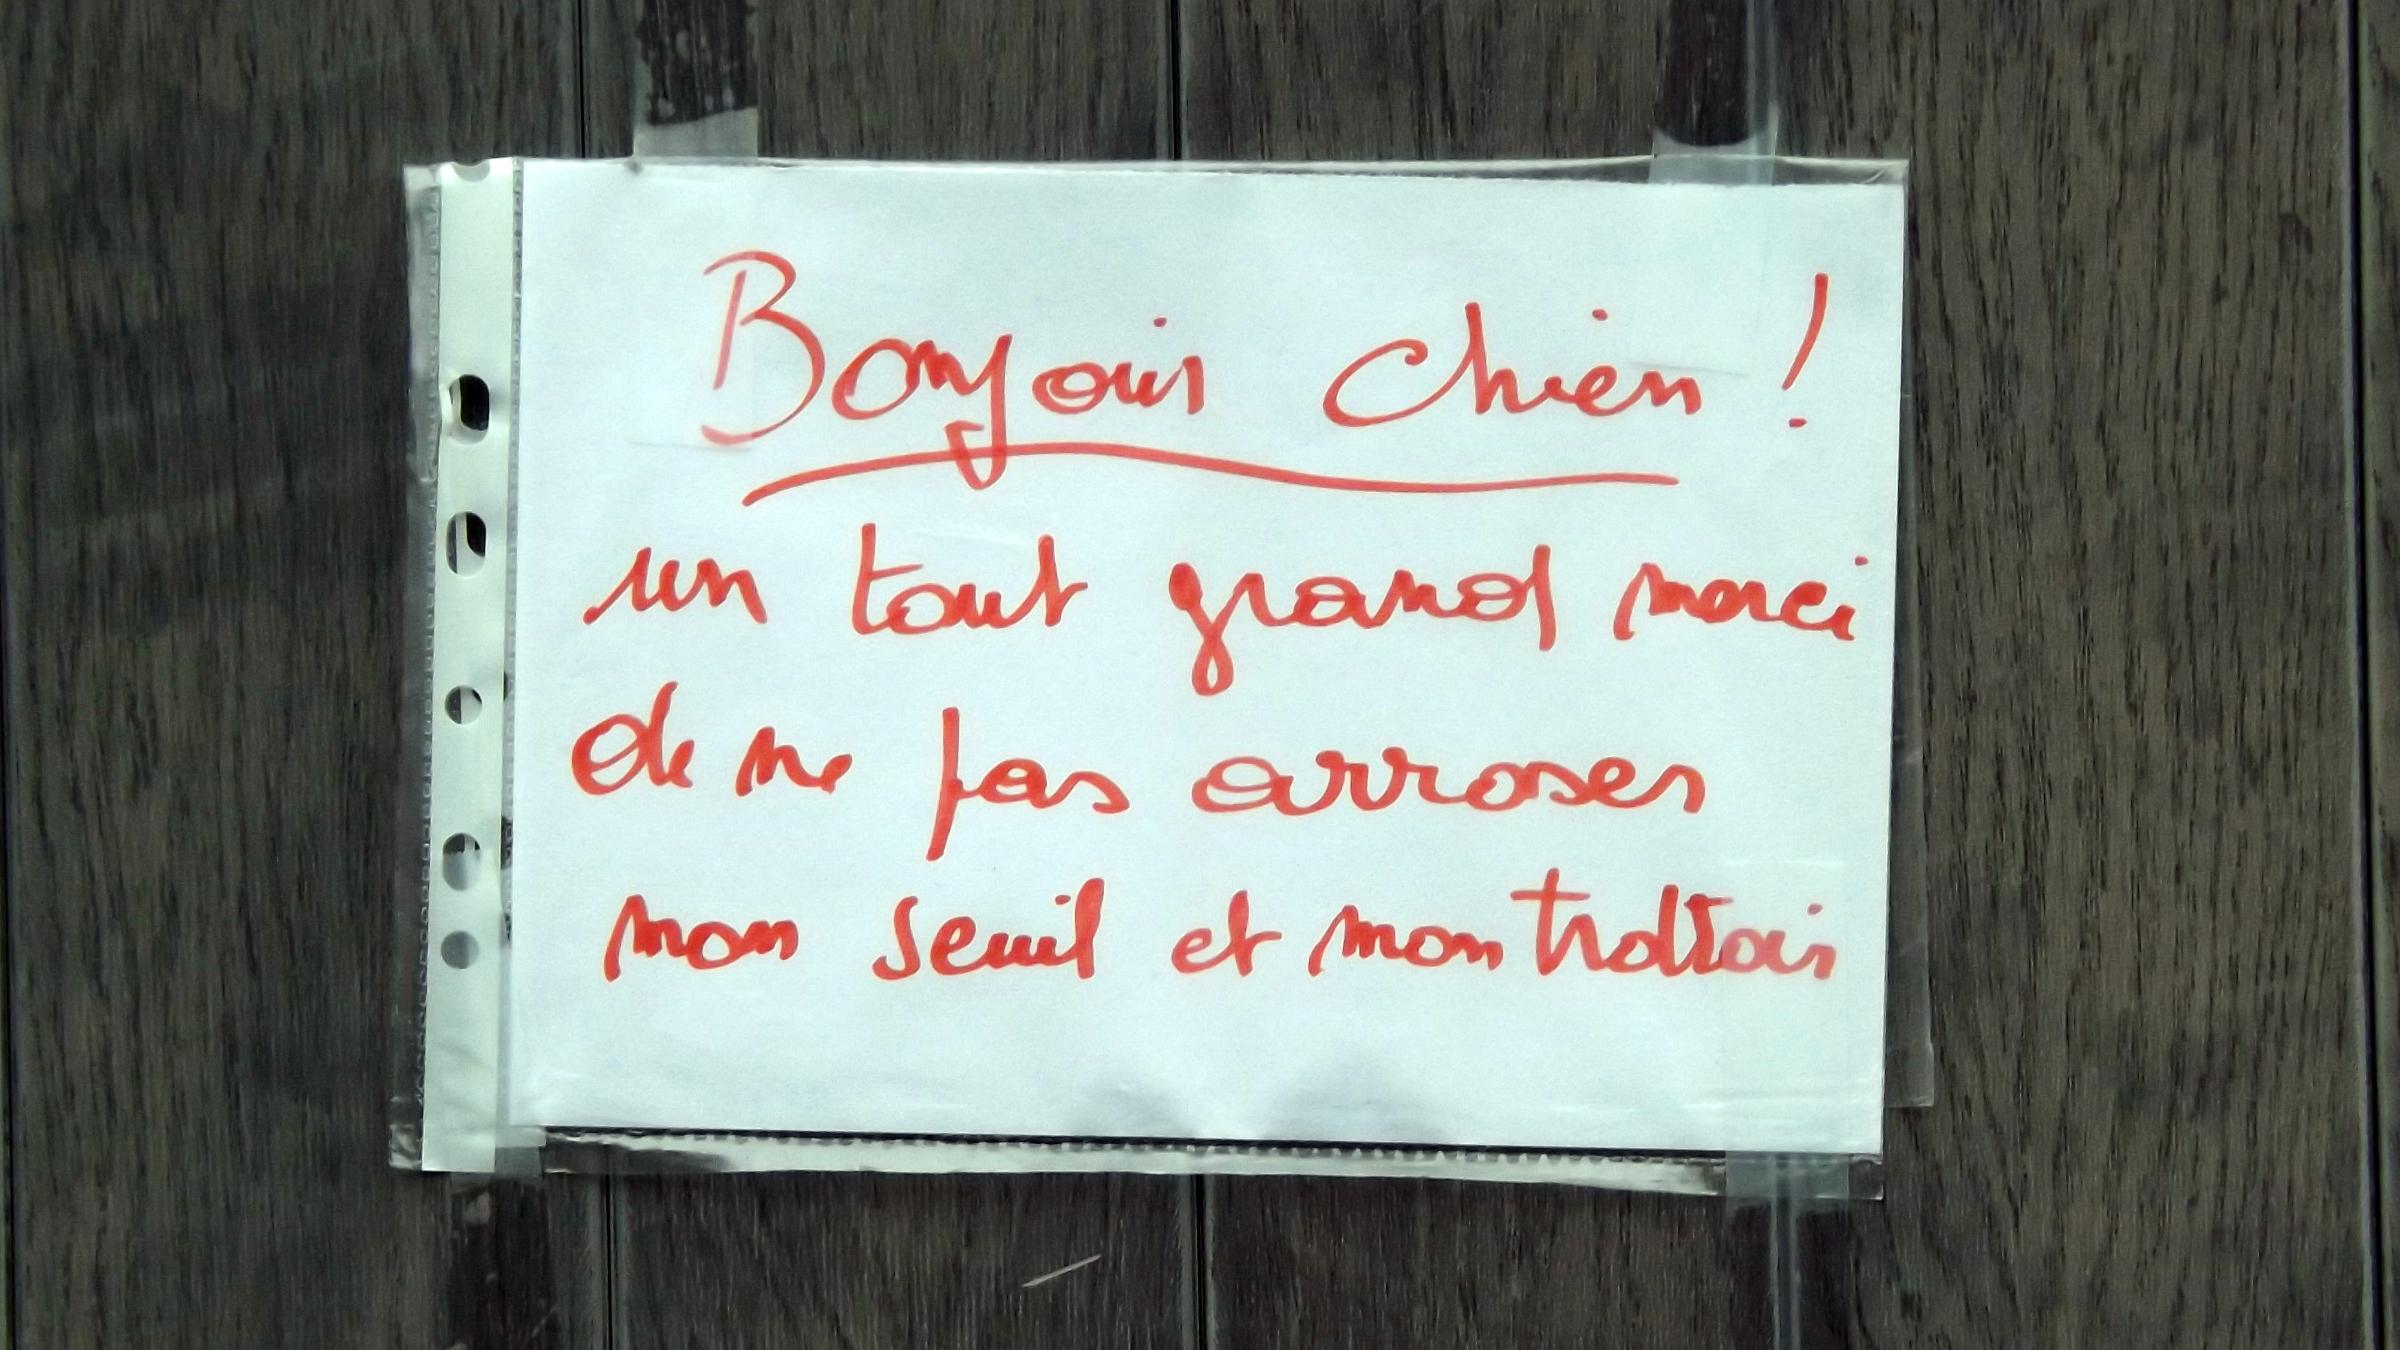 Bonjour chien !
un tout grand merci
de ne pas arroser
mon seuil et mon trottoir